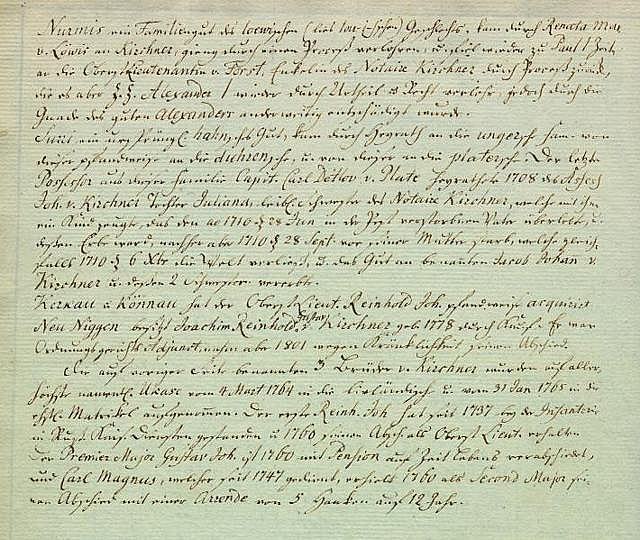 Nurmis ein Familiengut des loewischen (lies low-i-schen) Geschlechts, kam durch Renata Mar.
v. Löwis an Kirchner, gieng durch einen Process verlohren, u. fiel wieder zu Paul I Zeit
an die Oberstlieutenantin v. Forst, Enkelin des Notaire Kirchner durch Process zurück,
die es aber Alexander I wieder durch Urtheil u Recht verlohr, jedoch durch die
Gnade des guten Alexanders anderweitig entschädigt wurde.
ein hahnsches Gut, kam durch Heyrath an die ungersche Fam. von
dieser pfandweise an die dührensche, u. von dieser an die platersche. Der letzte
Possessor aus dieser Familie Capit. Carl Detlov v. Plate heyrathete 1708 des Assess
Joh. v. Kirchner Tochter Juliana, leibl. Schwester des Notaire Kirchner, welche mit ihm
ein Kind zeugte, das den ao 1710 d 28 Jun in der Pest verstorbenen Vater überlebte, u.
dessen Erbe ward, nachher aber 1710 d 28 Sept. vor seiner Mutter starb, welche gleich-
falls 1710 d 6 Xbr die Welt verließ, u. das Gut an benannten Jacob Johan v.
Kirchner u. dessen 2 Schwestern vererbte.
Kerkau u Könnau hat der Oberst Lieut. Reinhold Joh. pfandweise acquirirt
Neu Niggen besitzt Joachim Reinhold Gustav v. Kirchner geb. 1778 durch Kauf. Er war
Ordnungsgerichts Adjunct, nahm aber 1801 wegen Kränklichkeit seinen Abschied.
Die auf voriger Seite benannten 3 Brüder v. Kirchner wurden auf aller-
höchste namentl. Ukase vom 4 Mart 1764 in die livländische u. vom 31 Jan 1765 in die
ehstl. Matrikel aufgenommen. Der erste Reinh. Joh. hat seit 1737 bey der Infanterie
in Russ. Kais. Diensten gestanden u 1760 seinen Absch. als Oberst Lieut. erhalten
Der Premier Major Gustav Joh. ist 1760 mit Pension auf Zeit Lebens verabschiedet,
und Carl Magnus, welcher seit 1747 gedient, erhielt 1760 als Second Major sei-
nen Abschied mit einer Arrende von 5 Haaken auf 12 Jahr.